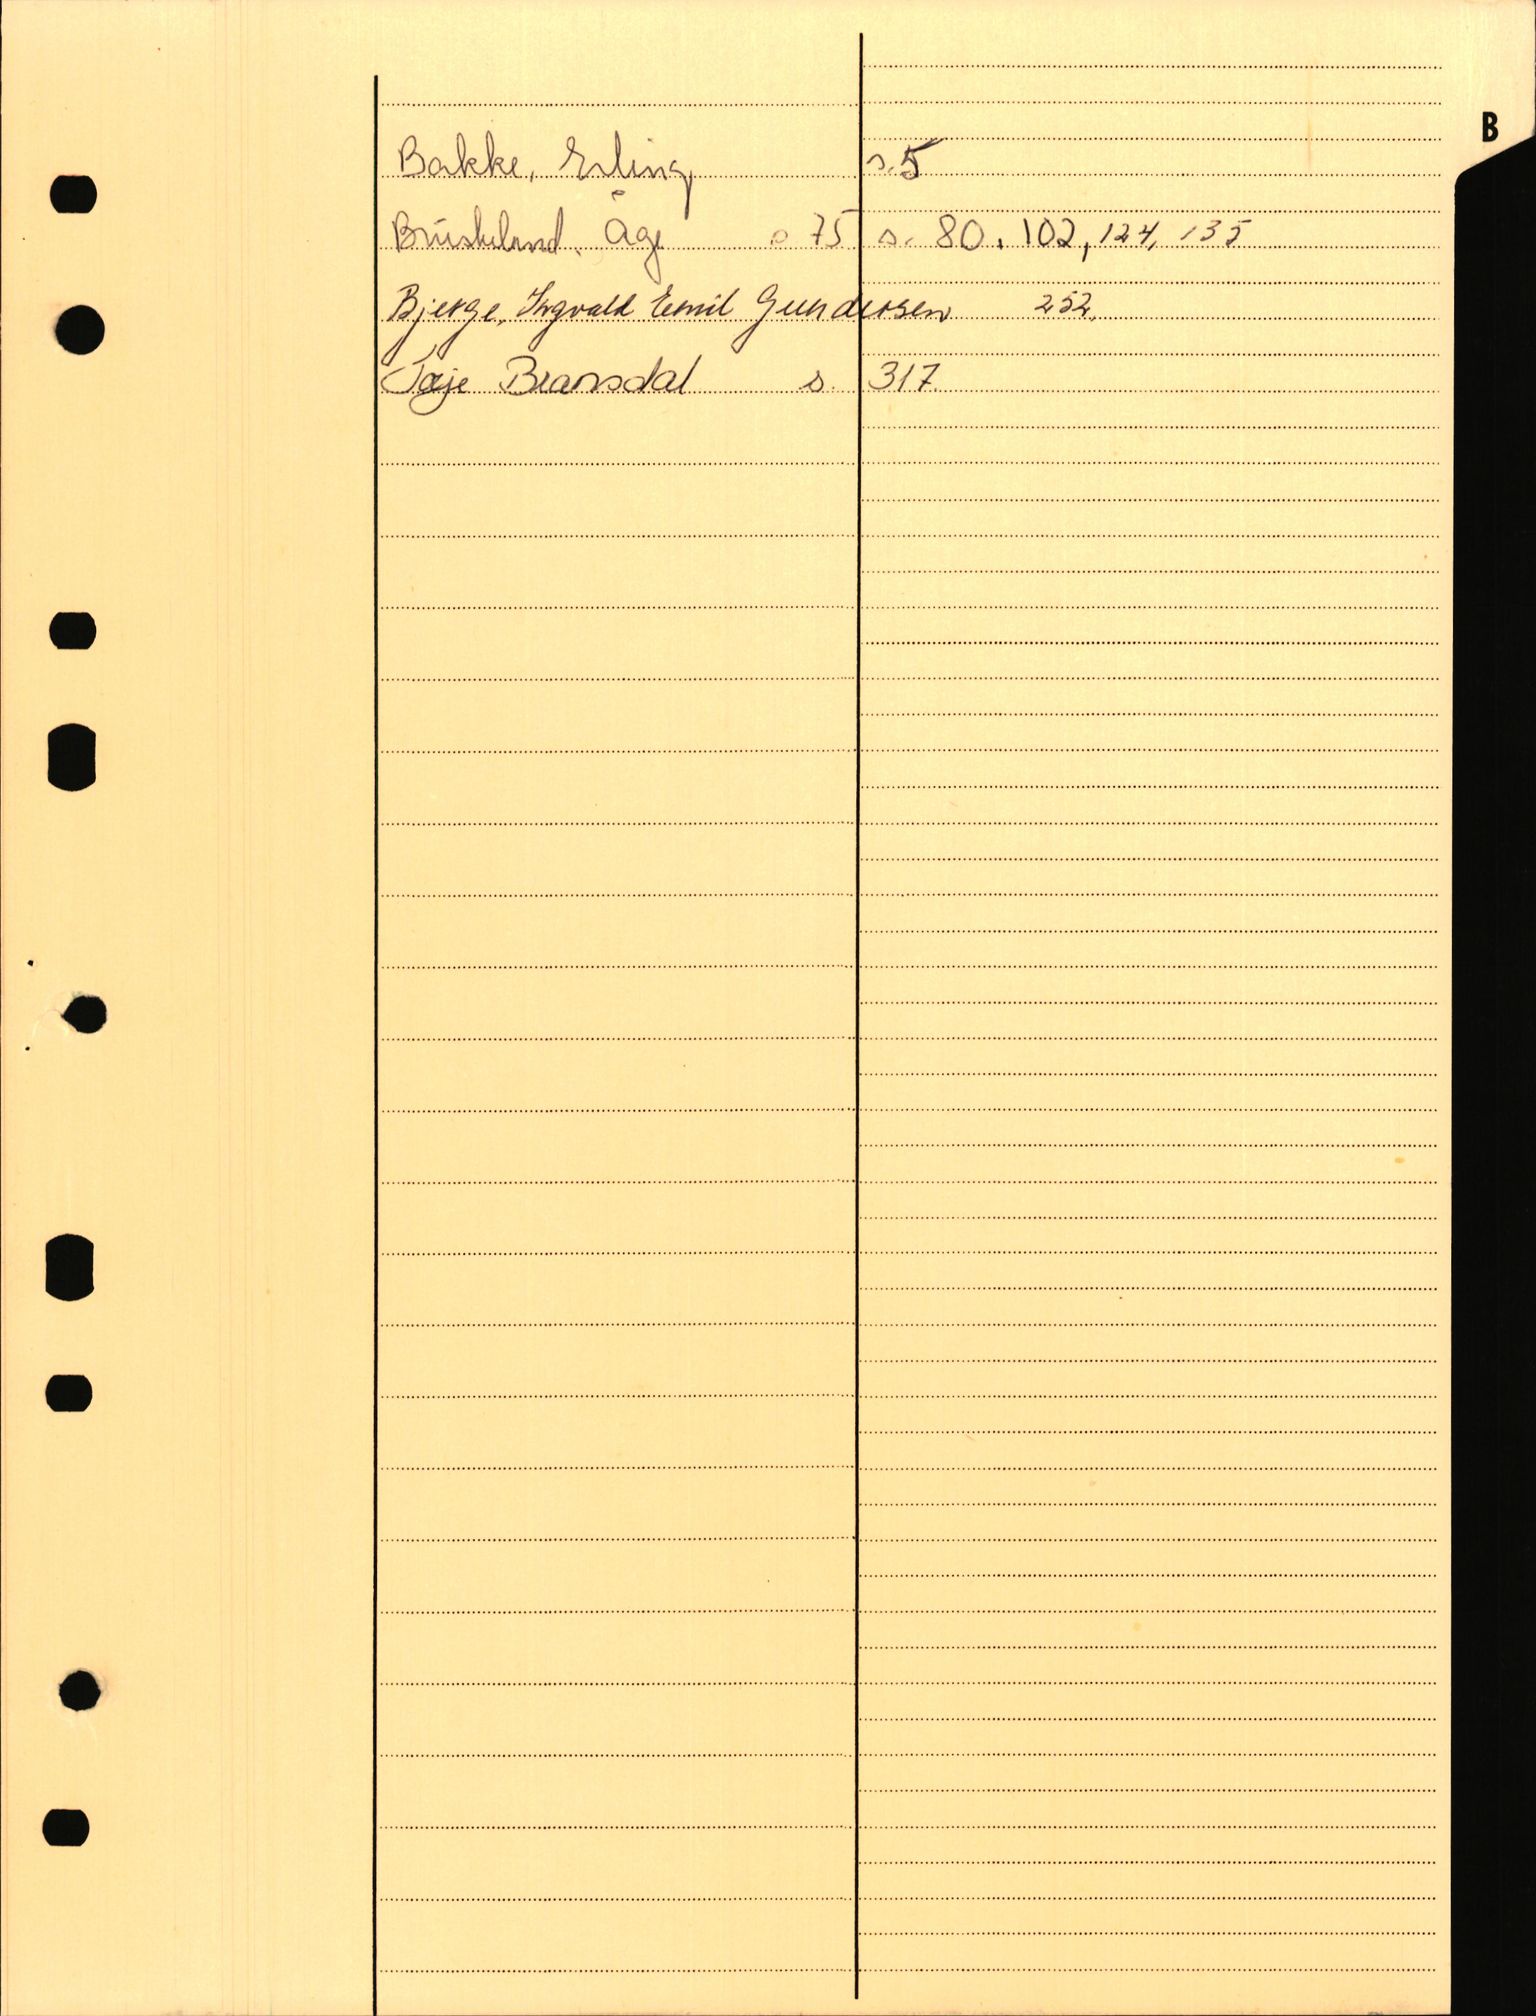 B
Bakke, Erling s. 5
Bruskeland, Åge s 75 s. 80, 102, 124, 135
Bjerge, Ingvald Emil Gundersen 252.
Taje Bransdal s. 317